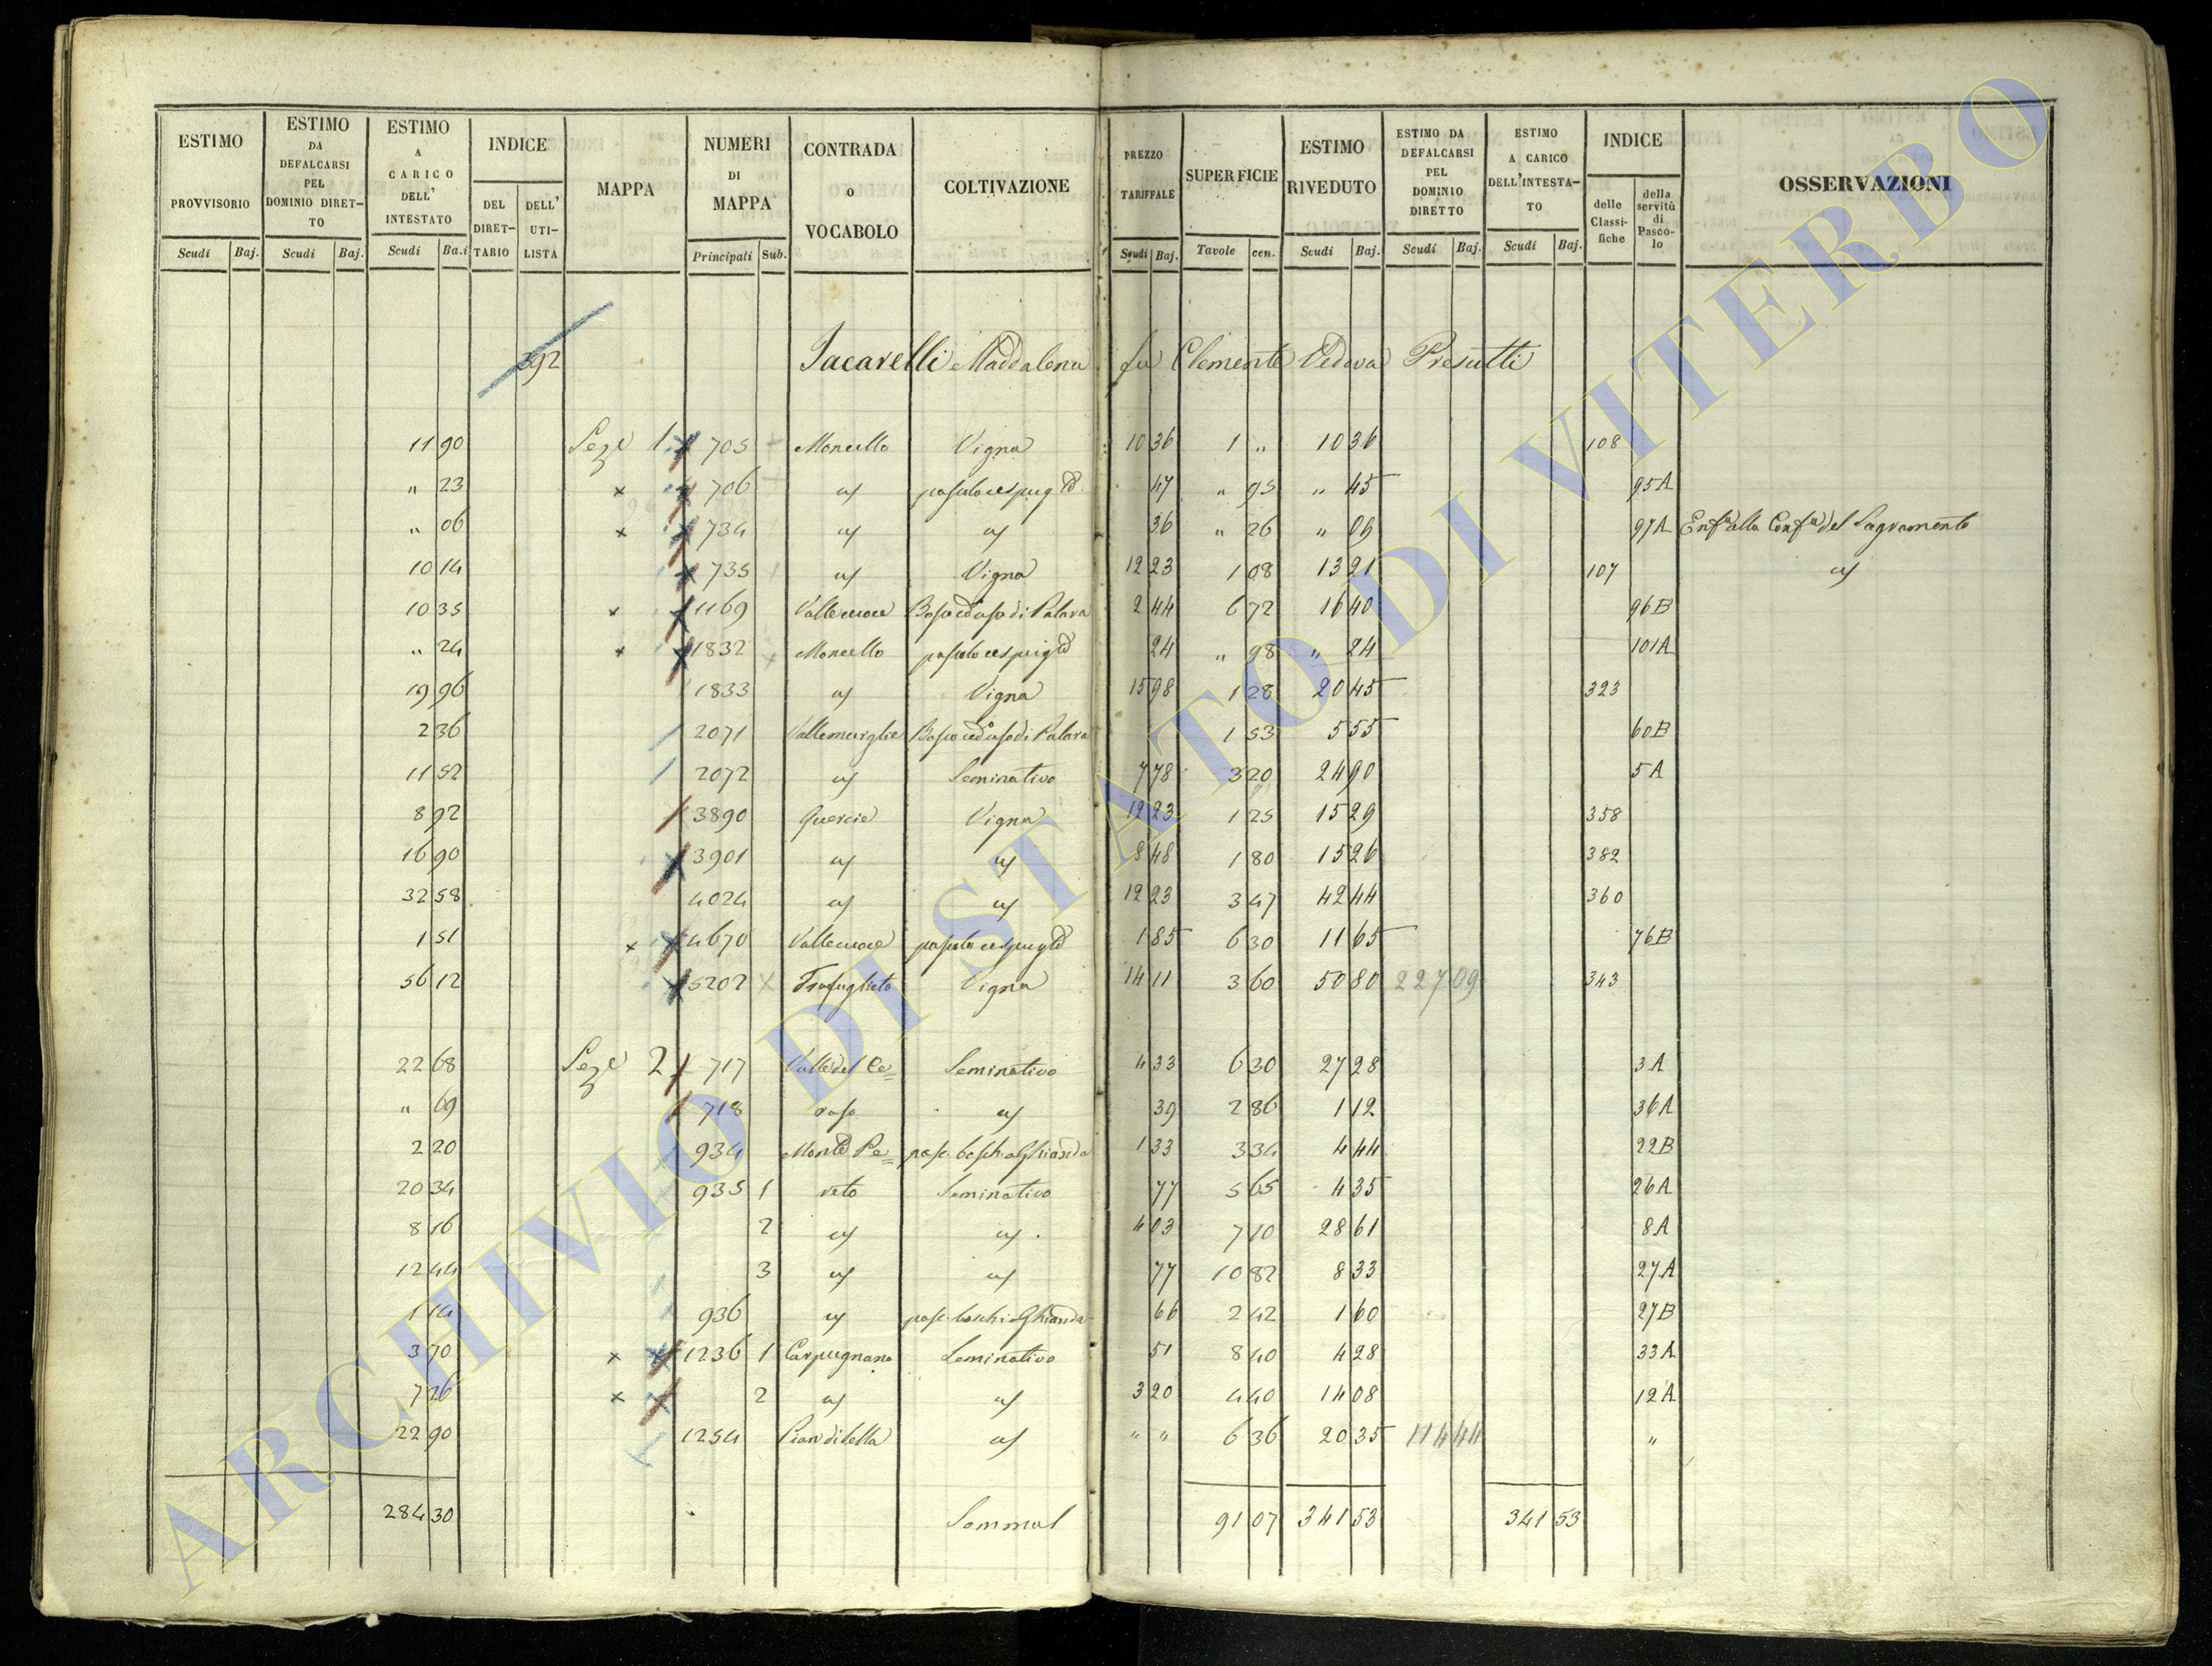 ESTIMO PROVVISORIO Scudi Baj.
ESTIMO DA DEFALCARSI PEL DOMINIO DIRETTO Scudi Baj.
ESTIMO A CARICO DELL' INTESTATO Scudi Ba.i
INDICE DEL DIRETTARIO DELL' UTILISTA
MAPPA
NUMERI DI MAPPA Principali Sub.
CONTRADA o VOCABOLO
COLTIVAZIONE
PREZZO TARIFFALE Scudi Baj.
SUPERFICIE Tavole cen.
ESTIMO RIVEDUTO Scudi Baj.
ESTIMO DA DEFALCARSI PEL DOMINIO DIRETTO Scudi Baj.
ESTIMO A CARICO DELL'INTESTATO Scudi Baj.
INDICE delle Classifiche della servitù di Pascolo
OSSERVAZIONI
392 Jacarelli Maddalena fu Clemente Vedova Presutti
11 90 Seze 1 705 Moncello Vigna 10 36 1 „ 10 36 108
„ 23 706 pascolo cespug 47 „ 95 „ 45 95A
„ 06 734 36 „ 26 „ 09 97A Enf alla Conf del Sagramento
10 14 735 Vigna 12 23 1 08 13 21 107
10 35 1169 Bosco ceduo di Palara 2 44 6 72 16 40 96B
„ 24 1832 Moncello pascolo cespug 24 „ 98 „ 24 101A
19 96 1833 Vigna 15 98 1 28 20 45 323
2 36 2071 Bosco ceduo di Palara 1 53 5 55 60B
11 52 2072 Seminativo 7 78 3 20 24 90 5A
8 92 3890 Quercie Vigna 12 23 1 25 15 29 358
16 90 3901 8 48 1 80 15 26 382
32 58 4024 12 23 3 47 42 44 360
1 51 4670 pascolo cespug 1 85 6 30 11 65 76B
56 12 5202 Vigna 14 11 3 60 50 80 227 09 343
22 68 Seze 2 717 Valle del Ce= Seminativo 4 33 6 30 27 28 3A
„ 69 718 raso 39 2 86 1 12 36A
2 20 934 Monte Pe= pasc. bosch. a Ghianda 1 33 3 34 4 44 22B
20 34 935 1 reto Seminativo 77 5 65 4 35 26A
8 16 2 4 03 7 10 28 61 8A
12 44 3 77 10 82 8 33 27A
1 14 936 pasc. bosch. Ghianda 66 2 42 1 60 27B
3 70 1236 1 Carpugnano Seminativo 51 8 40 4 28 33A
7 26 2 3 20 4 40 14 08 12A
22 90 1254 „ „ 6 36 20 35 114 44 „
284 30 Sommal 91 07 341 53 341 53
ARCHIVIO DI STATO DI VITERBO